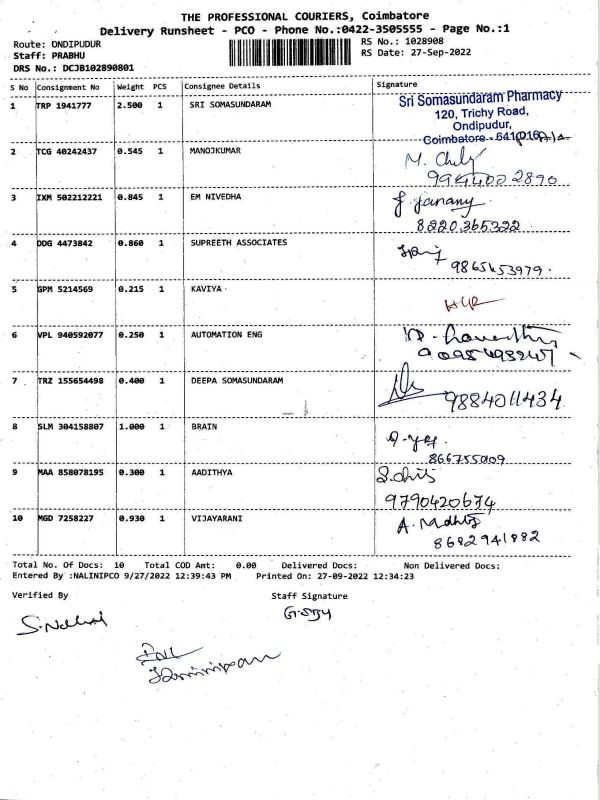 THE PROFESSIONAL COURIERS, Coimbatore
Delivery Runsheet - PCO - Phone No.:0422-3505555 - Page No.:1
Route: ONDIPUDUR RS No.: 1028908
Staff: PRABHU RS Date: 27-Sep-2022
DRS No.: DCJB102890801
S No Consignment No Weight PCS Consignee Details Signature
1 TRP 1941777 2.500 1 SRI SOMASUNDARAM Sri Somasundaram Pharmacy
120, Trichy Road,
Ondipudur,
Coimbatore - 641016
2 TCG 40242437 0.545 1 MANOJKUMAR
9944002890
3 IXM 502212221 0.845 1 EM NIVEDHA J. Janany
8220365322
4 DDG 4473842 0.860 1 SUPREETH ASSOCIATES
9865453979.
5 GPM 5214569 0.215 1 KAVIYA
6 VPL 940592077 0.250 1 AUTOMATION ENG
7 TRZ 155654498 0.400 1 DEEPA SOMASUNDARAM
9884011434
8 SLM 304158807 1.000 1 BRAIN
9 MAA 858078195 0.300 1 AADITHYA
9790420674
10 MGD 7258227 0.930 1 VIJAYARANI
8682941882
Total No. Of Docs: 10 Total COD Amt: 0.00 Delivered Docs: Non Delivered Docs:
Entered By :NALINIPCO 9/27/2022 12:39:43 PM Printed On: 27-09-2022 12:34:23
Verified By Staff Signature